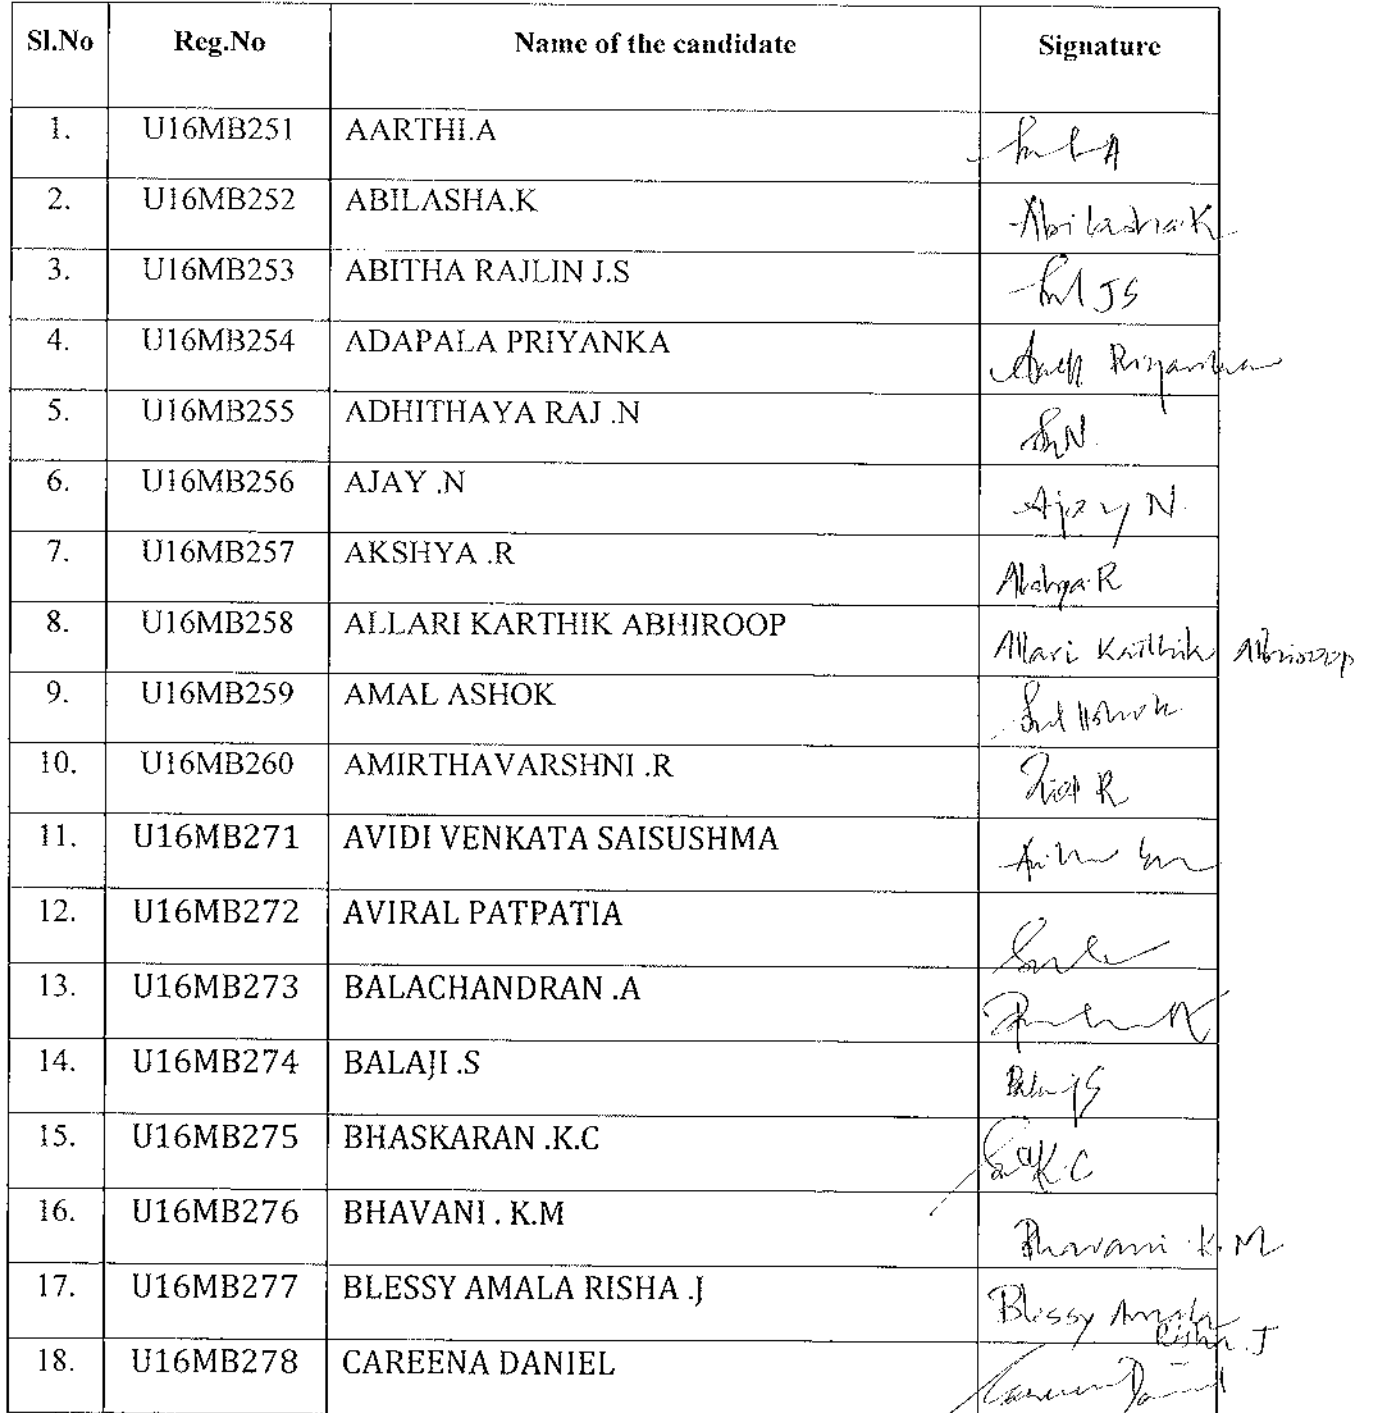 Sl.No Reg.No Name of the candidate Signature
1. U16MB251 AARTHI.A
2. U16MB252 ABILASHA.K Abilasha.K
3. U16MB253 ABITHA RAJLIN J.S JS
4. U16MB254 ADAPALA PRIYANKA Priyanka
5. U16MB255 ADHITHAYA RAJ .N N.
6. U16MB256 AJAY .N Ajay N.
7. U16MB257 AKSHYA .R Akshya.R
8. U16MB258 ALLARI KARTHIK ABHIROOP Allari Karthik Abhiroop
9. U16MB259 AMAL ASHOK Ashok
10. U16MB260 AMIRTHAVARSHNI .R R
11. U16MB271 AVIDI VENKATA SAISUSHMA
12. U16MB272 AVIRAL PATPATIA
13. U16MB273 BALACHANDRAN .A
14. U16MB274 BALAJI .S
15. U16MB275 BHASKARAN .K.C K.C
16. U16MB276 BHAVANI . K.M Bhavani .K.M
17. U16MB277 BLESSY AMALA RISHA .J Blessy Amala Risha.J
18. U16MB278 CAREENA DANIEL